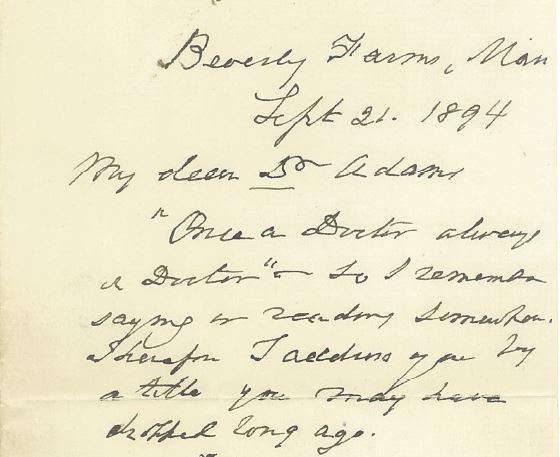 Beverly Farms, Mass
Sept 21. 1894
My dear Dr Adams
"Once a Doctor always
a Doctor" - So I remember
saying or reading somewhere.
Therefore I address you by
a title you may have
dropped long ago.